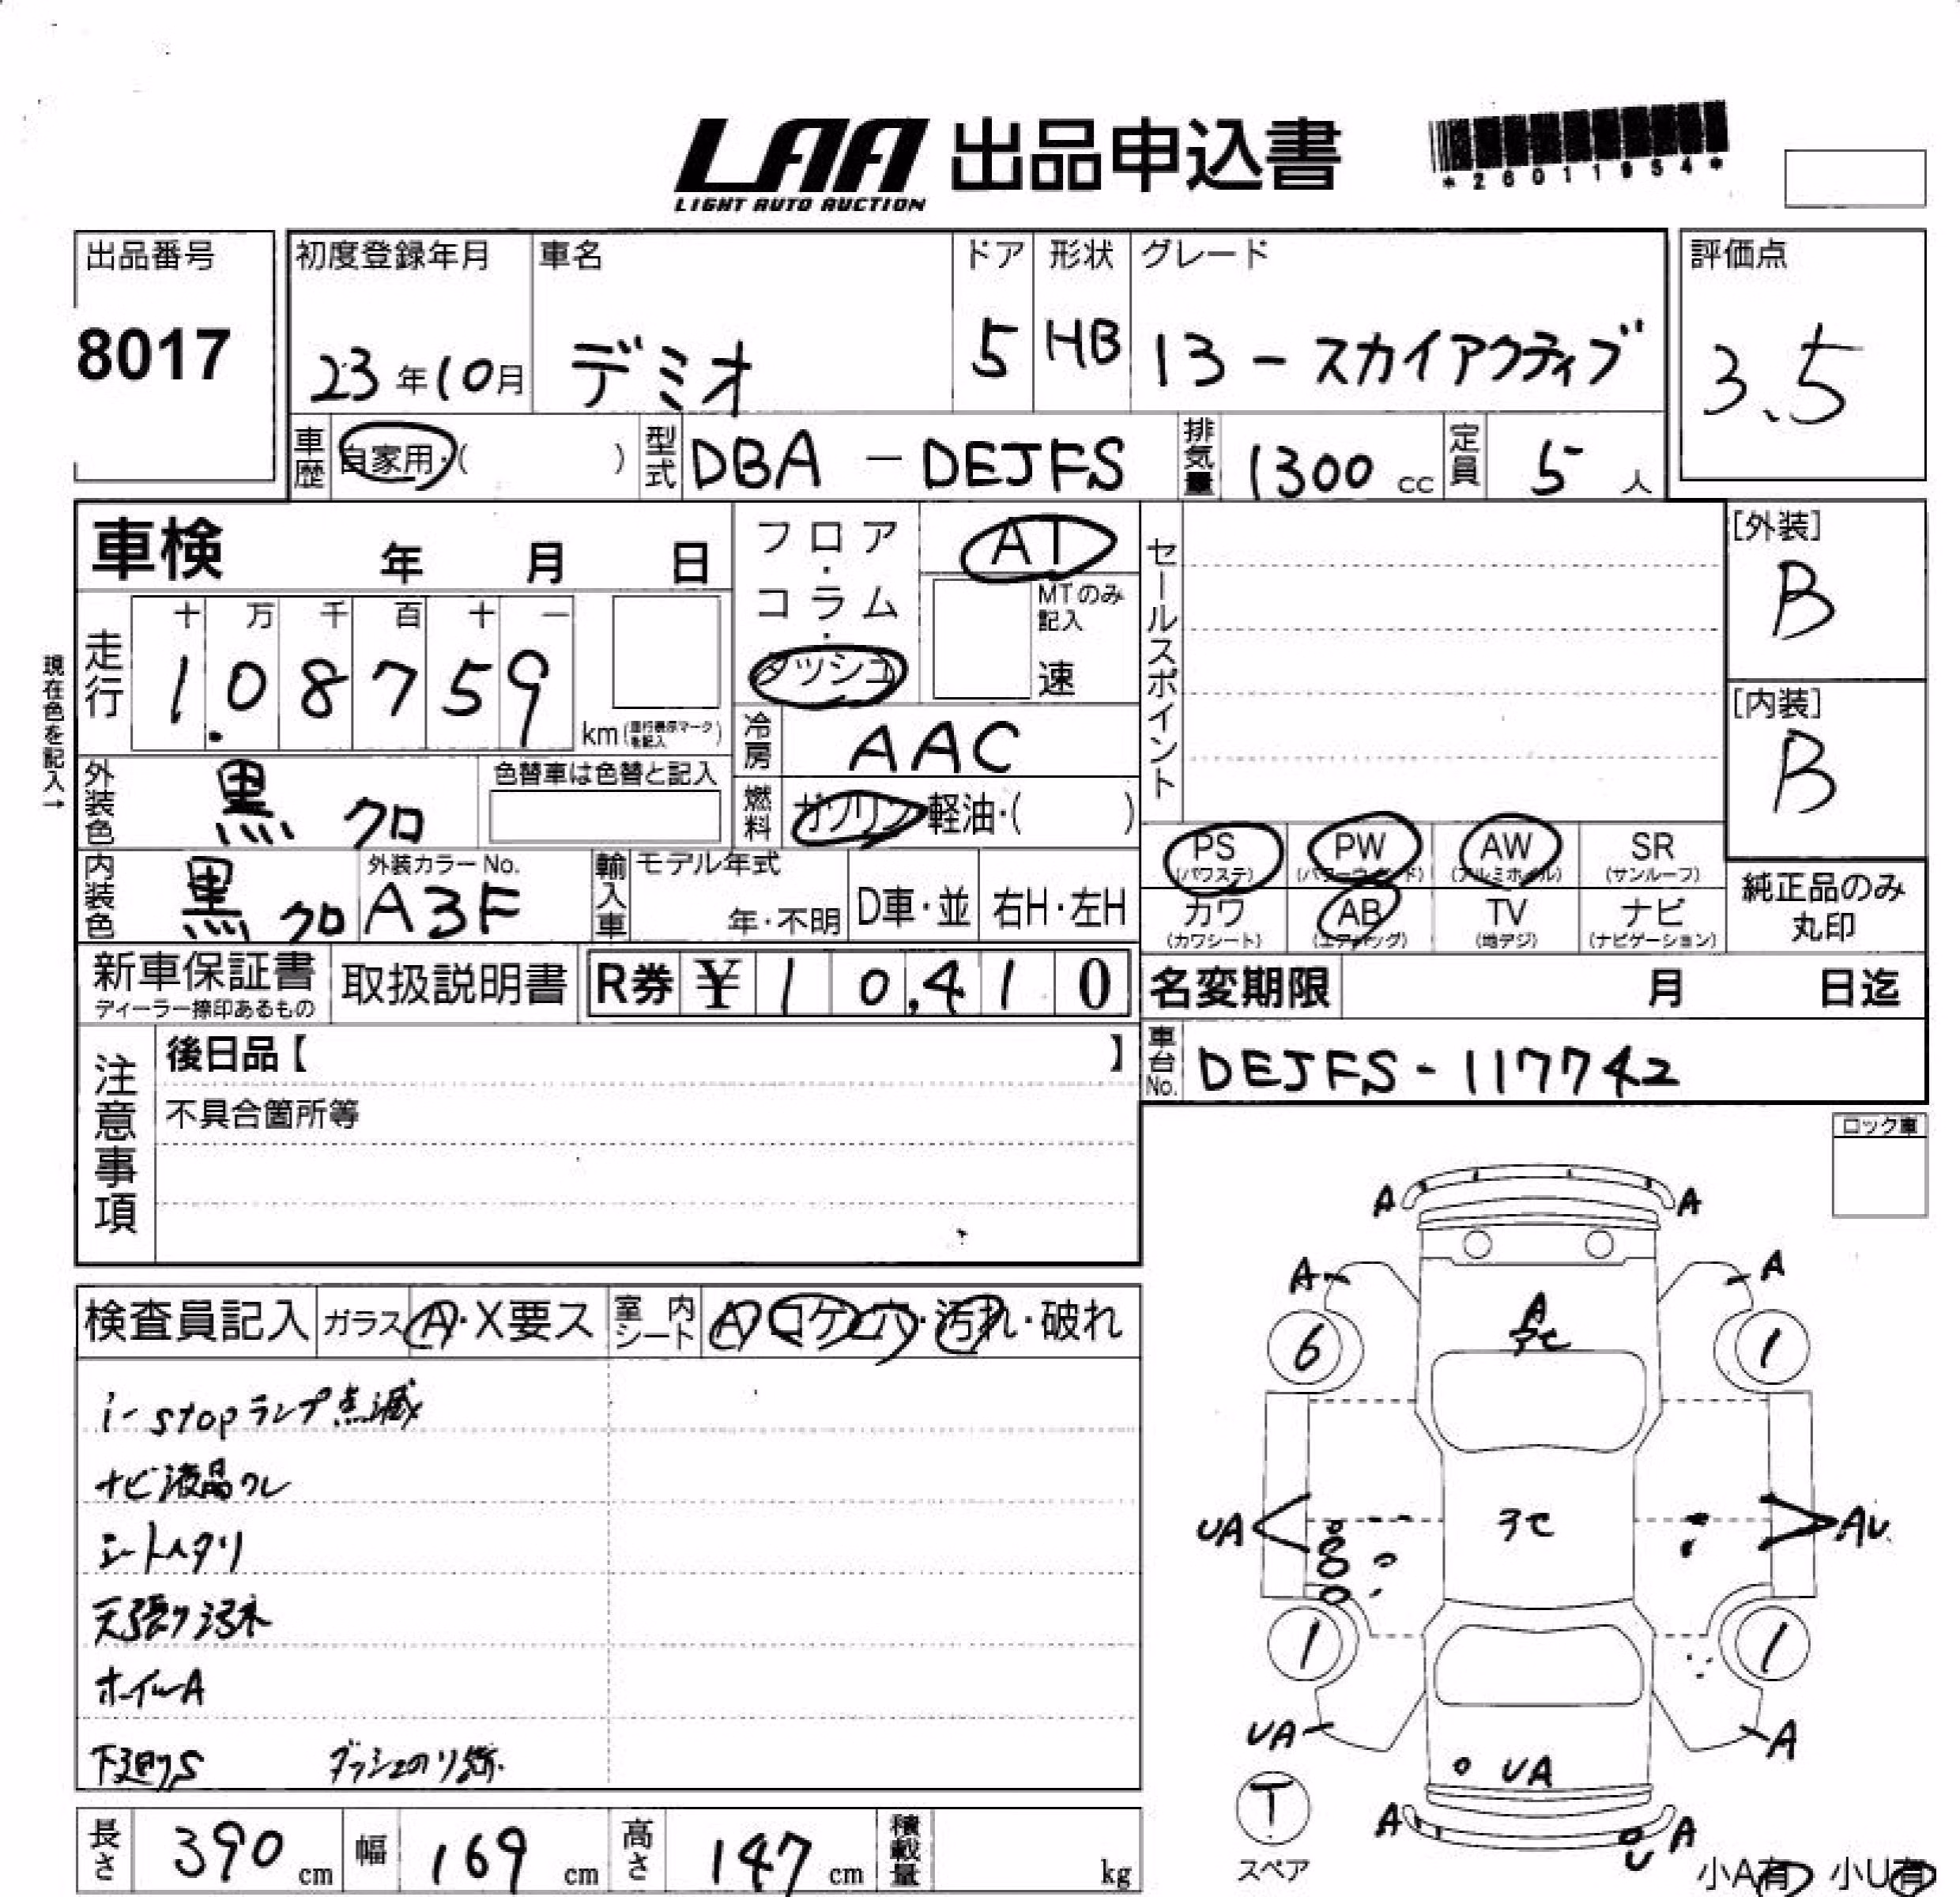 LAA 出品申込書
LIGHT AUTO AUCTION
*26011954*
出品番号
8017
初度登録年月
23年10月
車名
デミオ
ドア
5
形状
HB
グレード
13-スカイアクティブ
評価点
3.5
車歴
自家用・( )
型式
DBA - DEJFS
排気量
1300 cc
定員
5 人
車検 年 月 日
走行
十 万 千 百 十 一
1.08759
km(走行表示マークを記入)
現在色を記入→
フロア・コラム・ダッシュ
AT
MTのみ記入
速
冷房
AAC
燃料
ガソリン・軽油・( )
外装色
黒 クロ
色替車は色替と記入
内装色
黒 クロ
外装カラーNo.
A3F
輸入車
モデル年式
年・不明
D車・並
右H・左H
セールスポイント
[外装]
B
[内装]
B
PS
(パワステ)
PW
(パワーウィンド)
AW
(アルミホイル)
SR
(サンルーフ)
カワ
(カワシート)
AB
(エアバッグ)
TV
(地デジ)
ナビ
(ナビゲーション)
純正品のみ
丸印
新車保証書
ディーラー捺印あるもの
取扱説明書
R券 ¥10,410
名変期限 月 日迄
車台No.
DEJFS-117742
注意事項
後日品【 】
不具合箇所等
ロック車
検査員記入
ガラス
A・X要ス
室内シート
A・コゲ・穴・汚れ・破れ
i-stopランプ点滅
ナビ液晶クレ
シートヘタリ
天張り汚れ
ホイールA
下廻りS
ダッシュのり跡
A A
A A
A
6 1
UA AU
1 1
UA A
UA
T
スペア
A A
U
小A有 小U有
長さ 390 cm
幅 169 cm
高さ 147 cm
積載量 kg